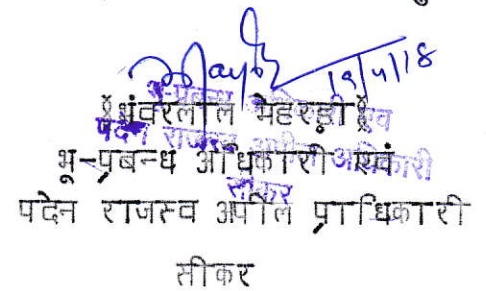 19/4/18
(भंवरलाल मेहरड़ा)
भू-प्रबन्ध अधिकारी एवं
पदेन राजस्व अपील प्राधिकारी
सीकर
भू-प्रबन्ध अधिकारी एवं
पदेन राजस्व अपील अधिकारी
सीकर